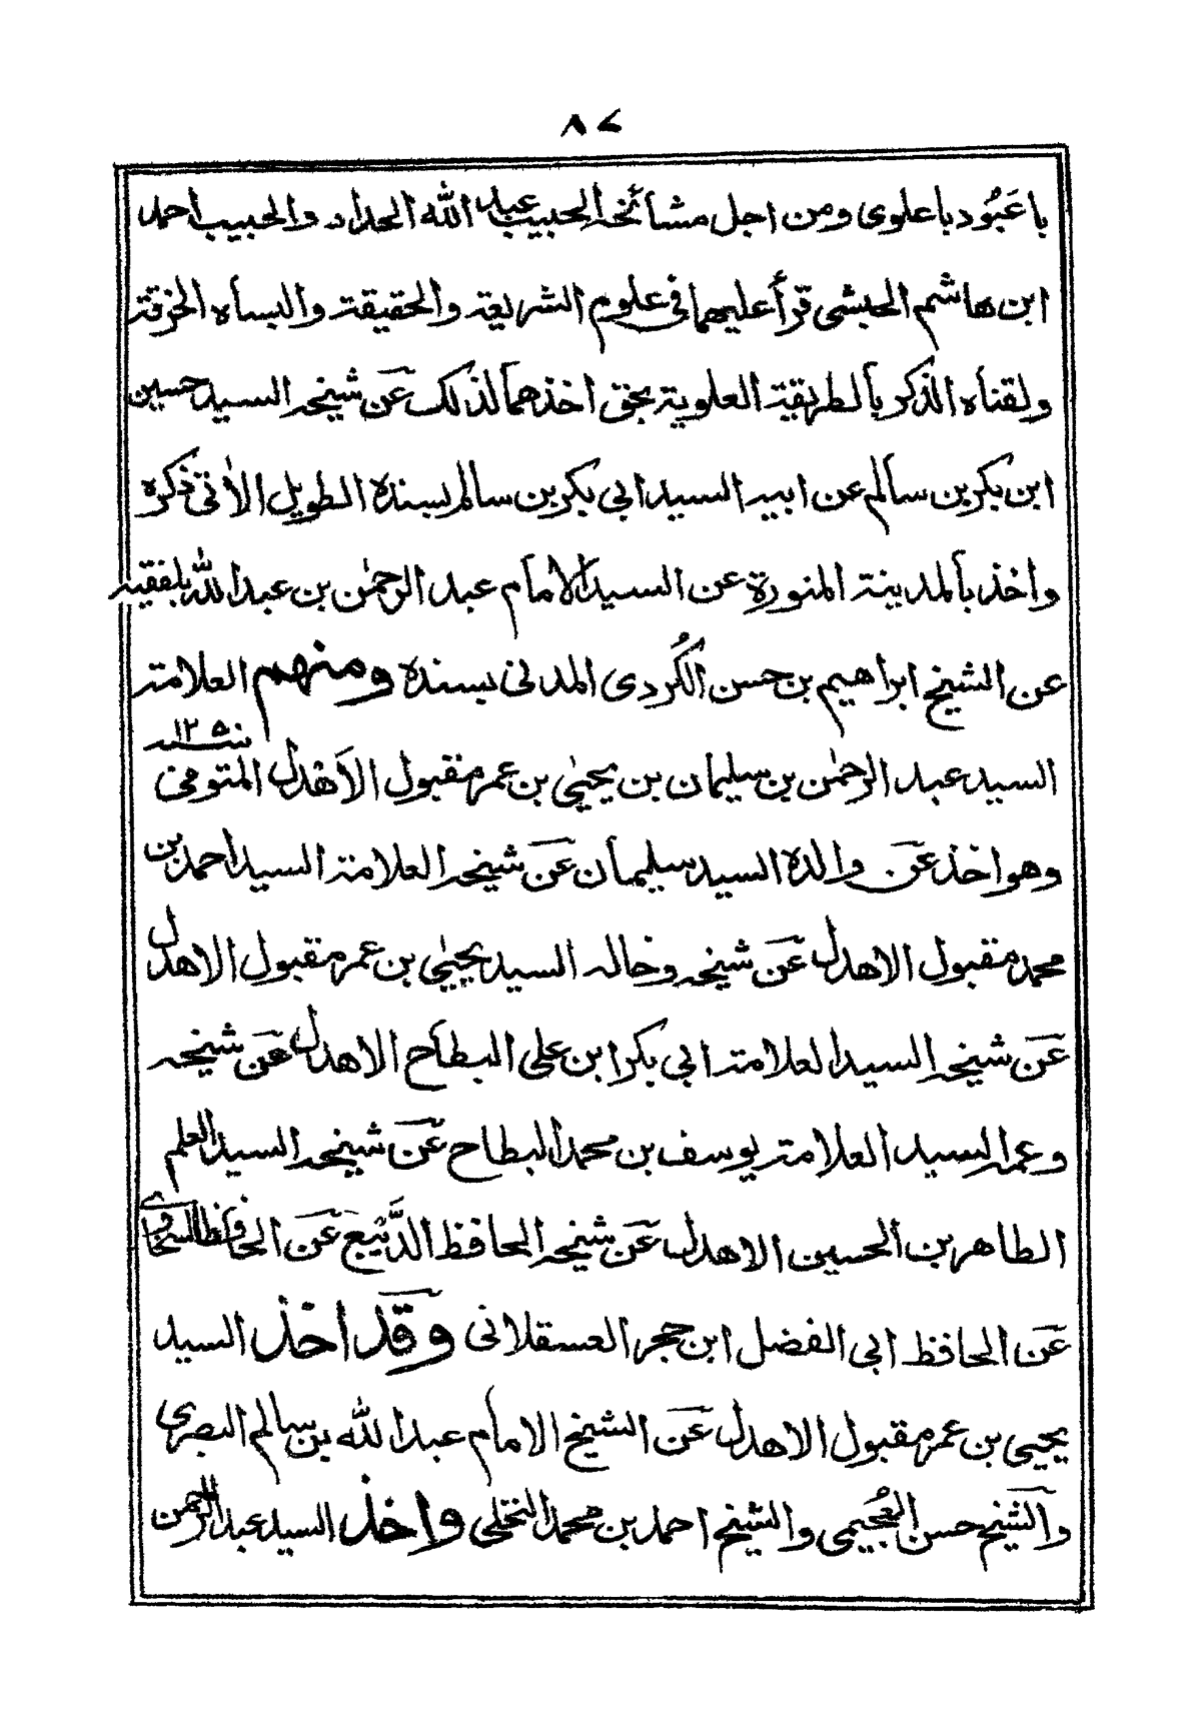 ٨٧
باعَبُود باعلوى ومن اجل مشائخه الحبيب عبد الله الحداد والحبيب احمد
ابن هاشم الحبشى قرأ عليهما فى علوم الشريعة والحقيقة والبساه الخرقة
ولقناه الذكر بالطريقة العلوية بحق اخذهما لذلك عَن شيخه السيد حسين
ابن بكر بن سالم عن ابيه السيد ابي بكر بن سالم بسنده الطويل الأتى ذكره
واخذ بالمدينة المنورة عن السيد الامام عبد الرحمٰن بن عبد الله بلفقيه
عن الشيخ ابراهيم بن حسن الكُردى المدنى بسنده ومنهم العلامة
السيد عبد الرحمٰن بن سليمان بن يحيىٰ بن عمر مقبول الأهدل المتوفى
سنة ١٢٥٠
وهو اخذ عَن والده السيد سليمان عَن شيخه العلامة السيد احمد بن
محمد مقبول الاهدل عَن شيخه وخاله السيد يحيىٰ بن عمر مقبول الاهدل
عَن شيخه السيد العلامة ابي بكر ابن على البطاح الاهدل عَن شيخه
وعمه السيد العلامة يوسف بن محمد البطاح عَن شيخه السيد العلم
الطاهر بن الحسين الاهدل عَن شيخه الحافظ الدَّيبَع عَن الحافظ السخاوى
عَن الحافظ ابي الفضل ابن حجر العسقلانى وَقَد اخذ السيد
يحيى بن عمر مقبول الاهدل عَن الشيخ الامام عبد الله بن سالم البصرى
والشيخ حسن العُجيمى والشيخ احمد بن محمد النخلى واخذ السيد عبد الرحمن